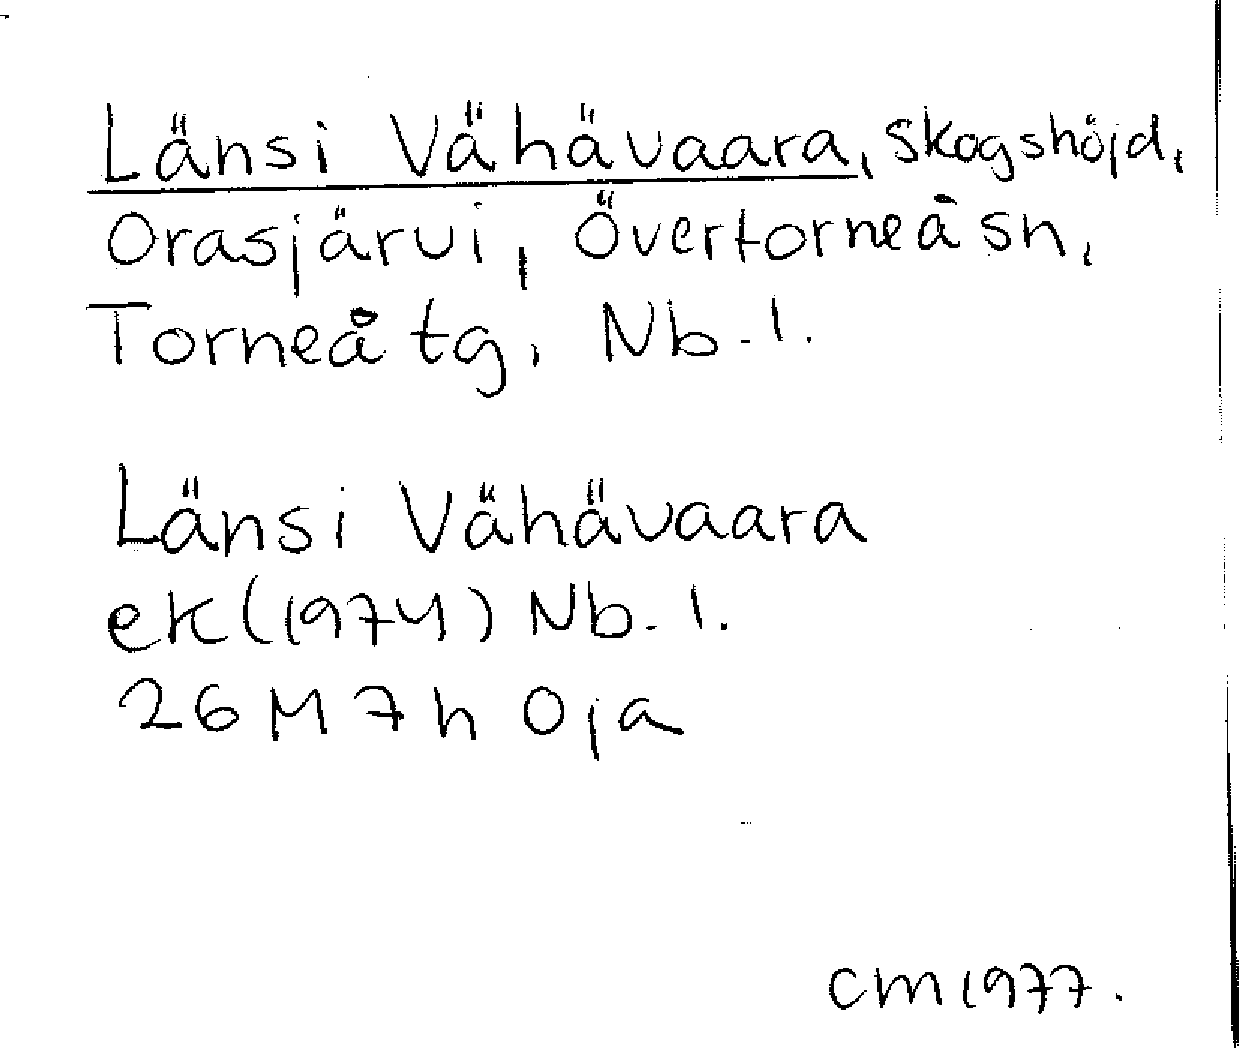 Länsi Vähävaara, skogshöjd,
Orasjärvi, Övertorneå sn,
Torneå tg, Nb. l.
Länsi Vähävaara
ek (1974) Nb. l.
26 M 7 h Oja
CM 1977.